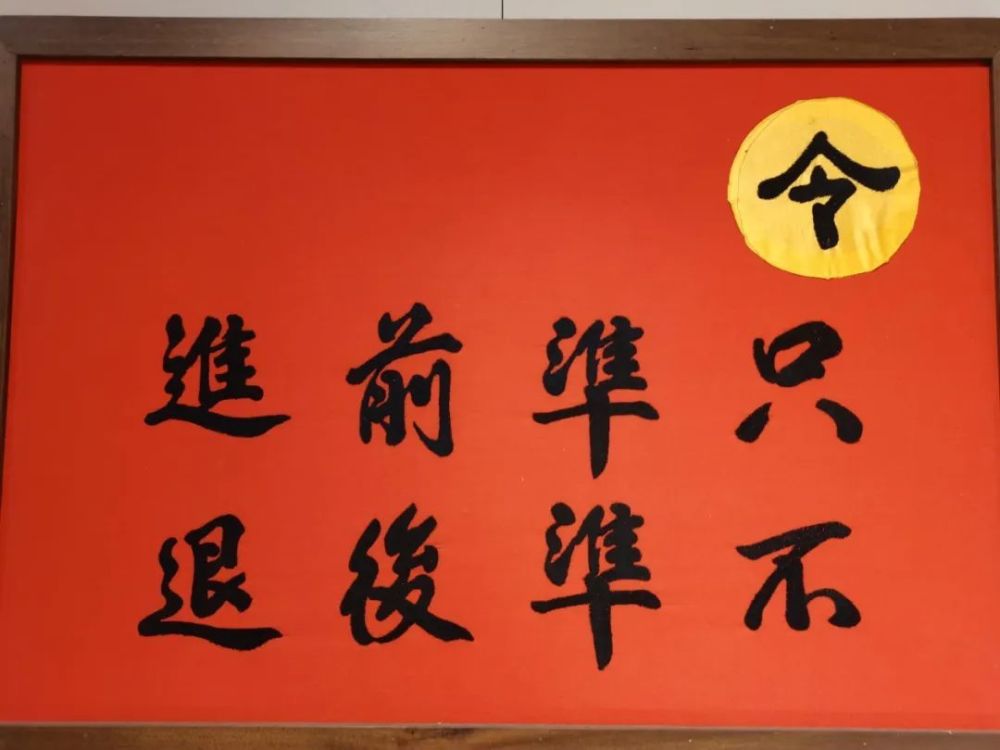 令
只準前進
不準後退